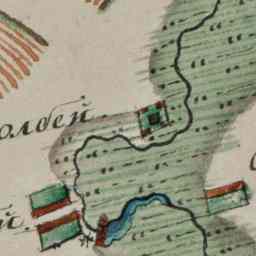 олбей
й.